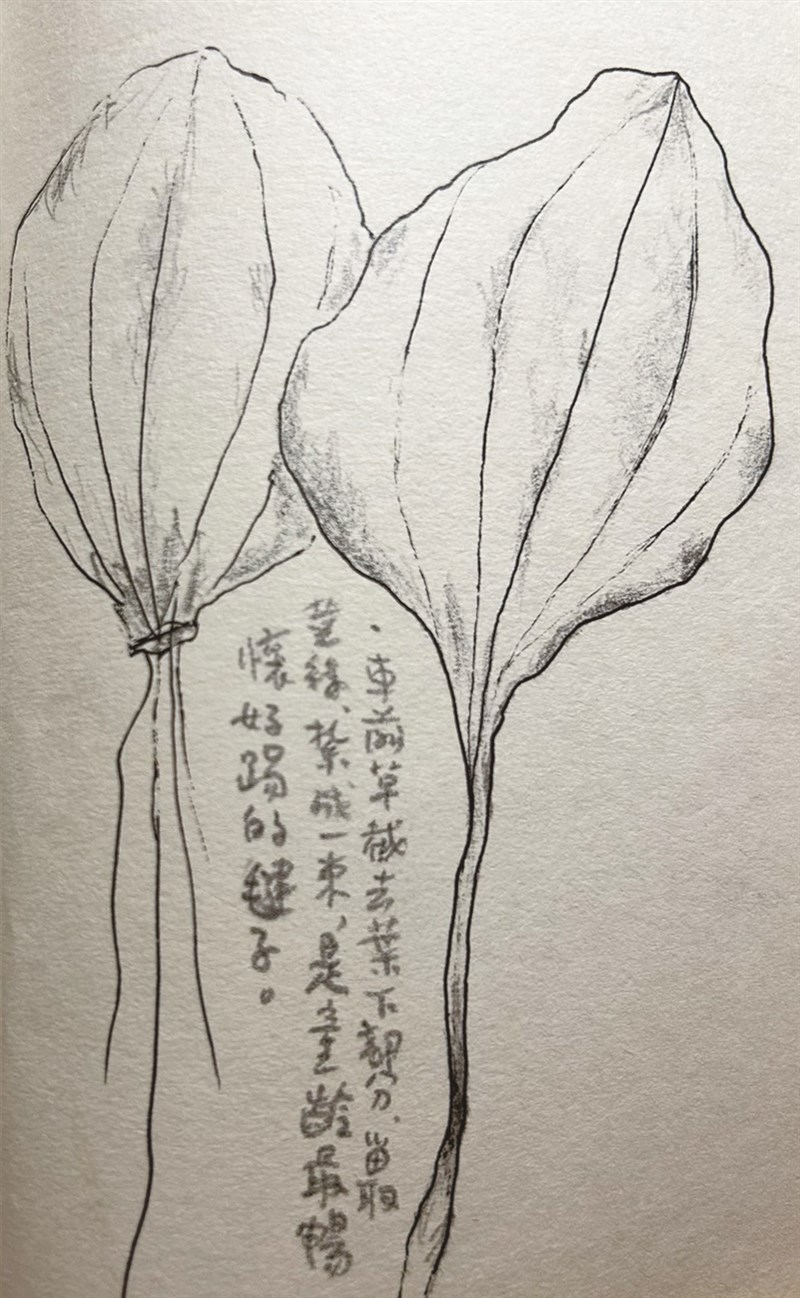 ·車前草截去葉下部分、留取
莖絲、紮成一束,是童齡最暢
懷好踢的毽子。